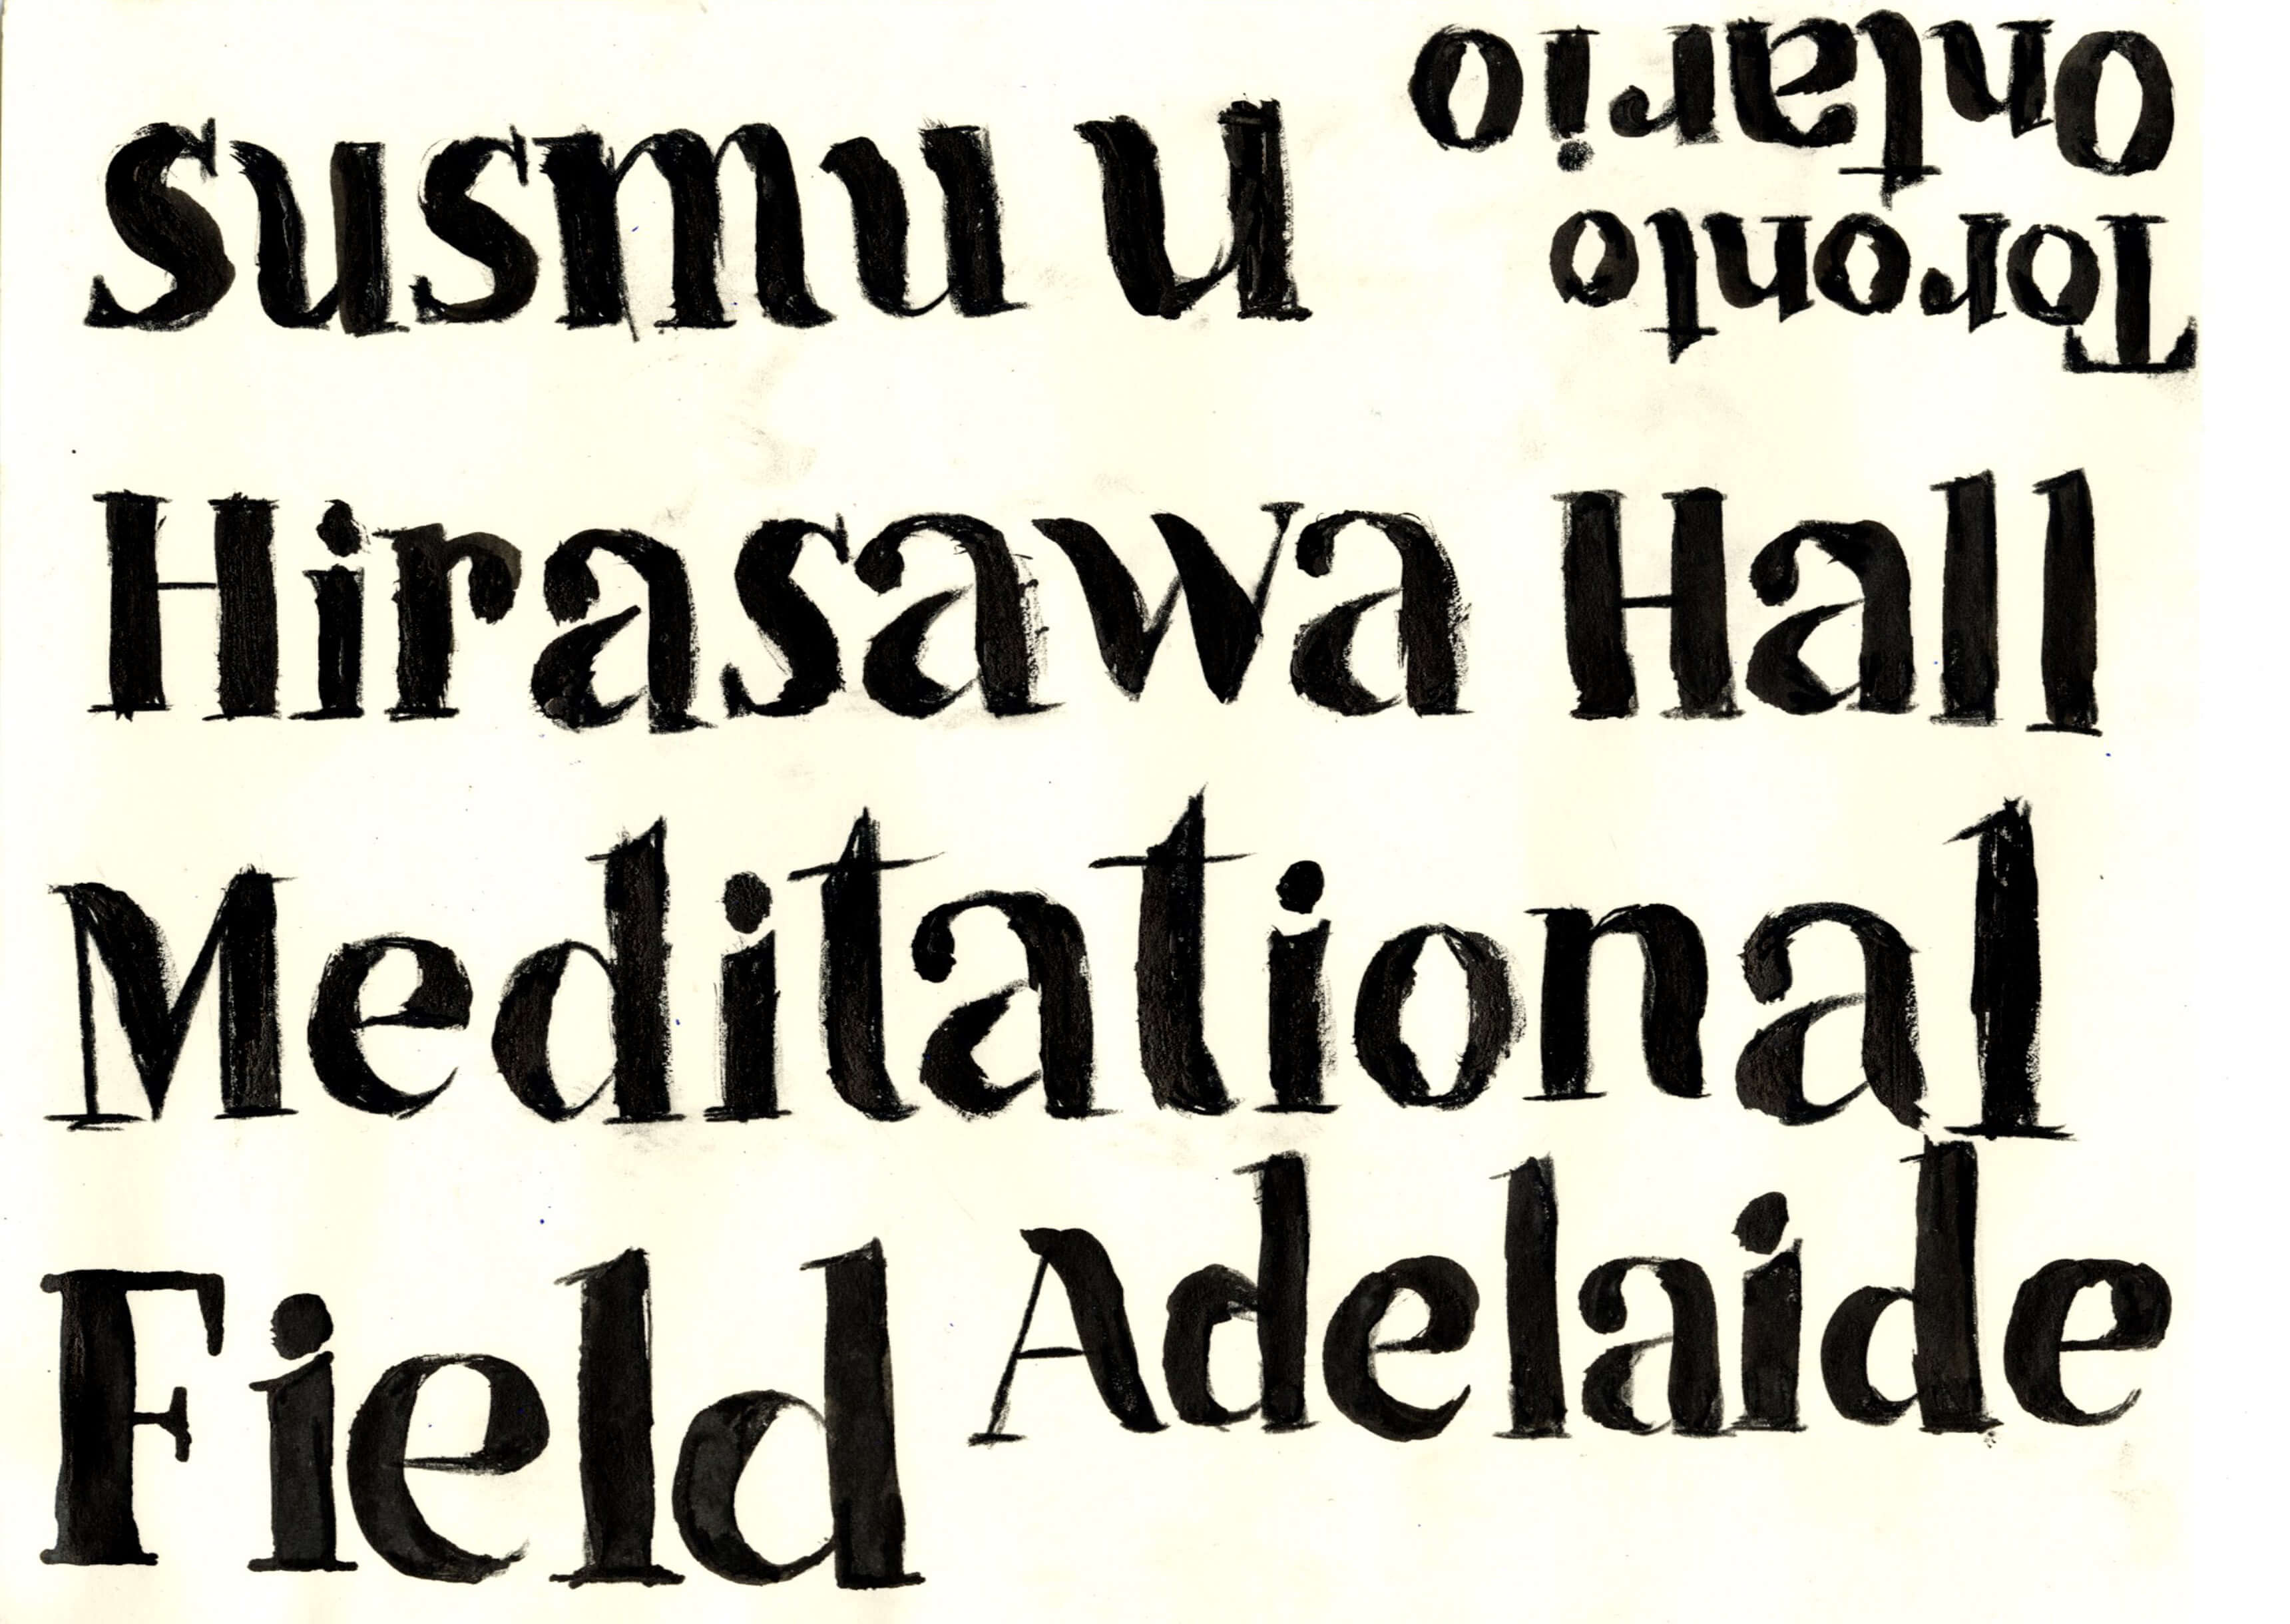 susmu u
Ontario
Toronto
Hirasawa Hall
Meditational
Field Adelaide